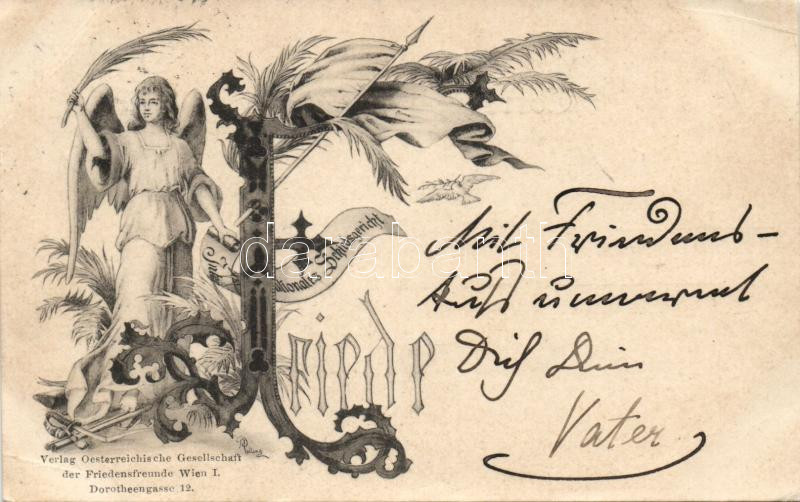 Internationales Schiedsgericht
Friede
Mit Friedens-
Kuß umarmt
Dich Dein
Vater
Verlag Oesterreichische Gesellschaft
der Friedensfreunde Wien I.
Dorotheengasse 12.
darabanth